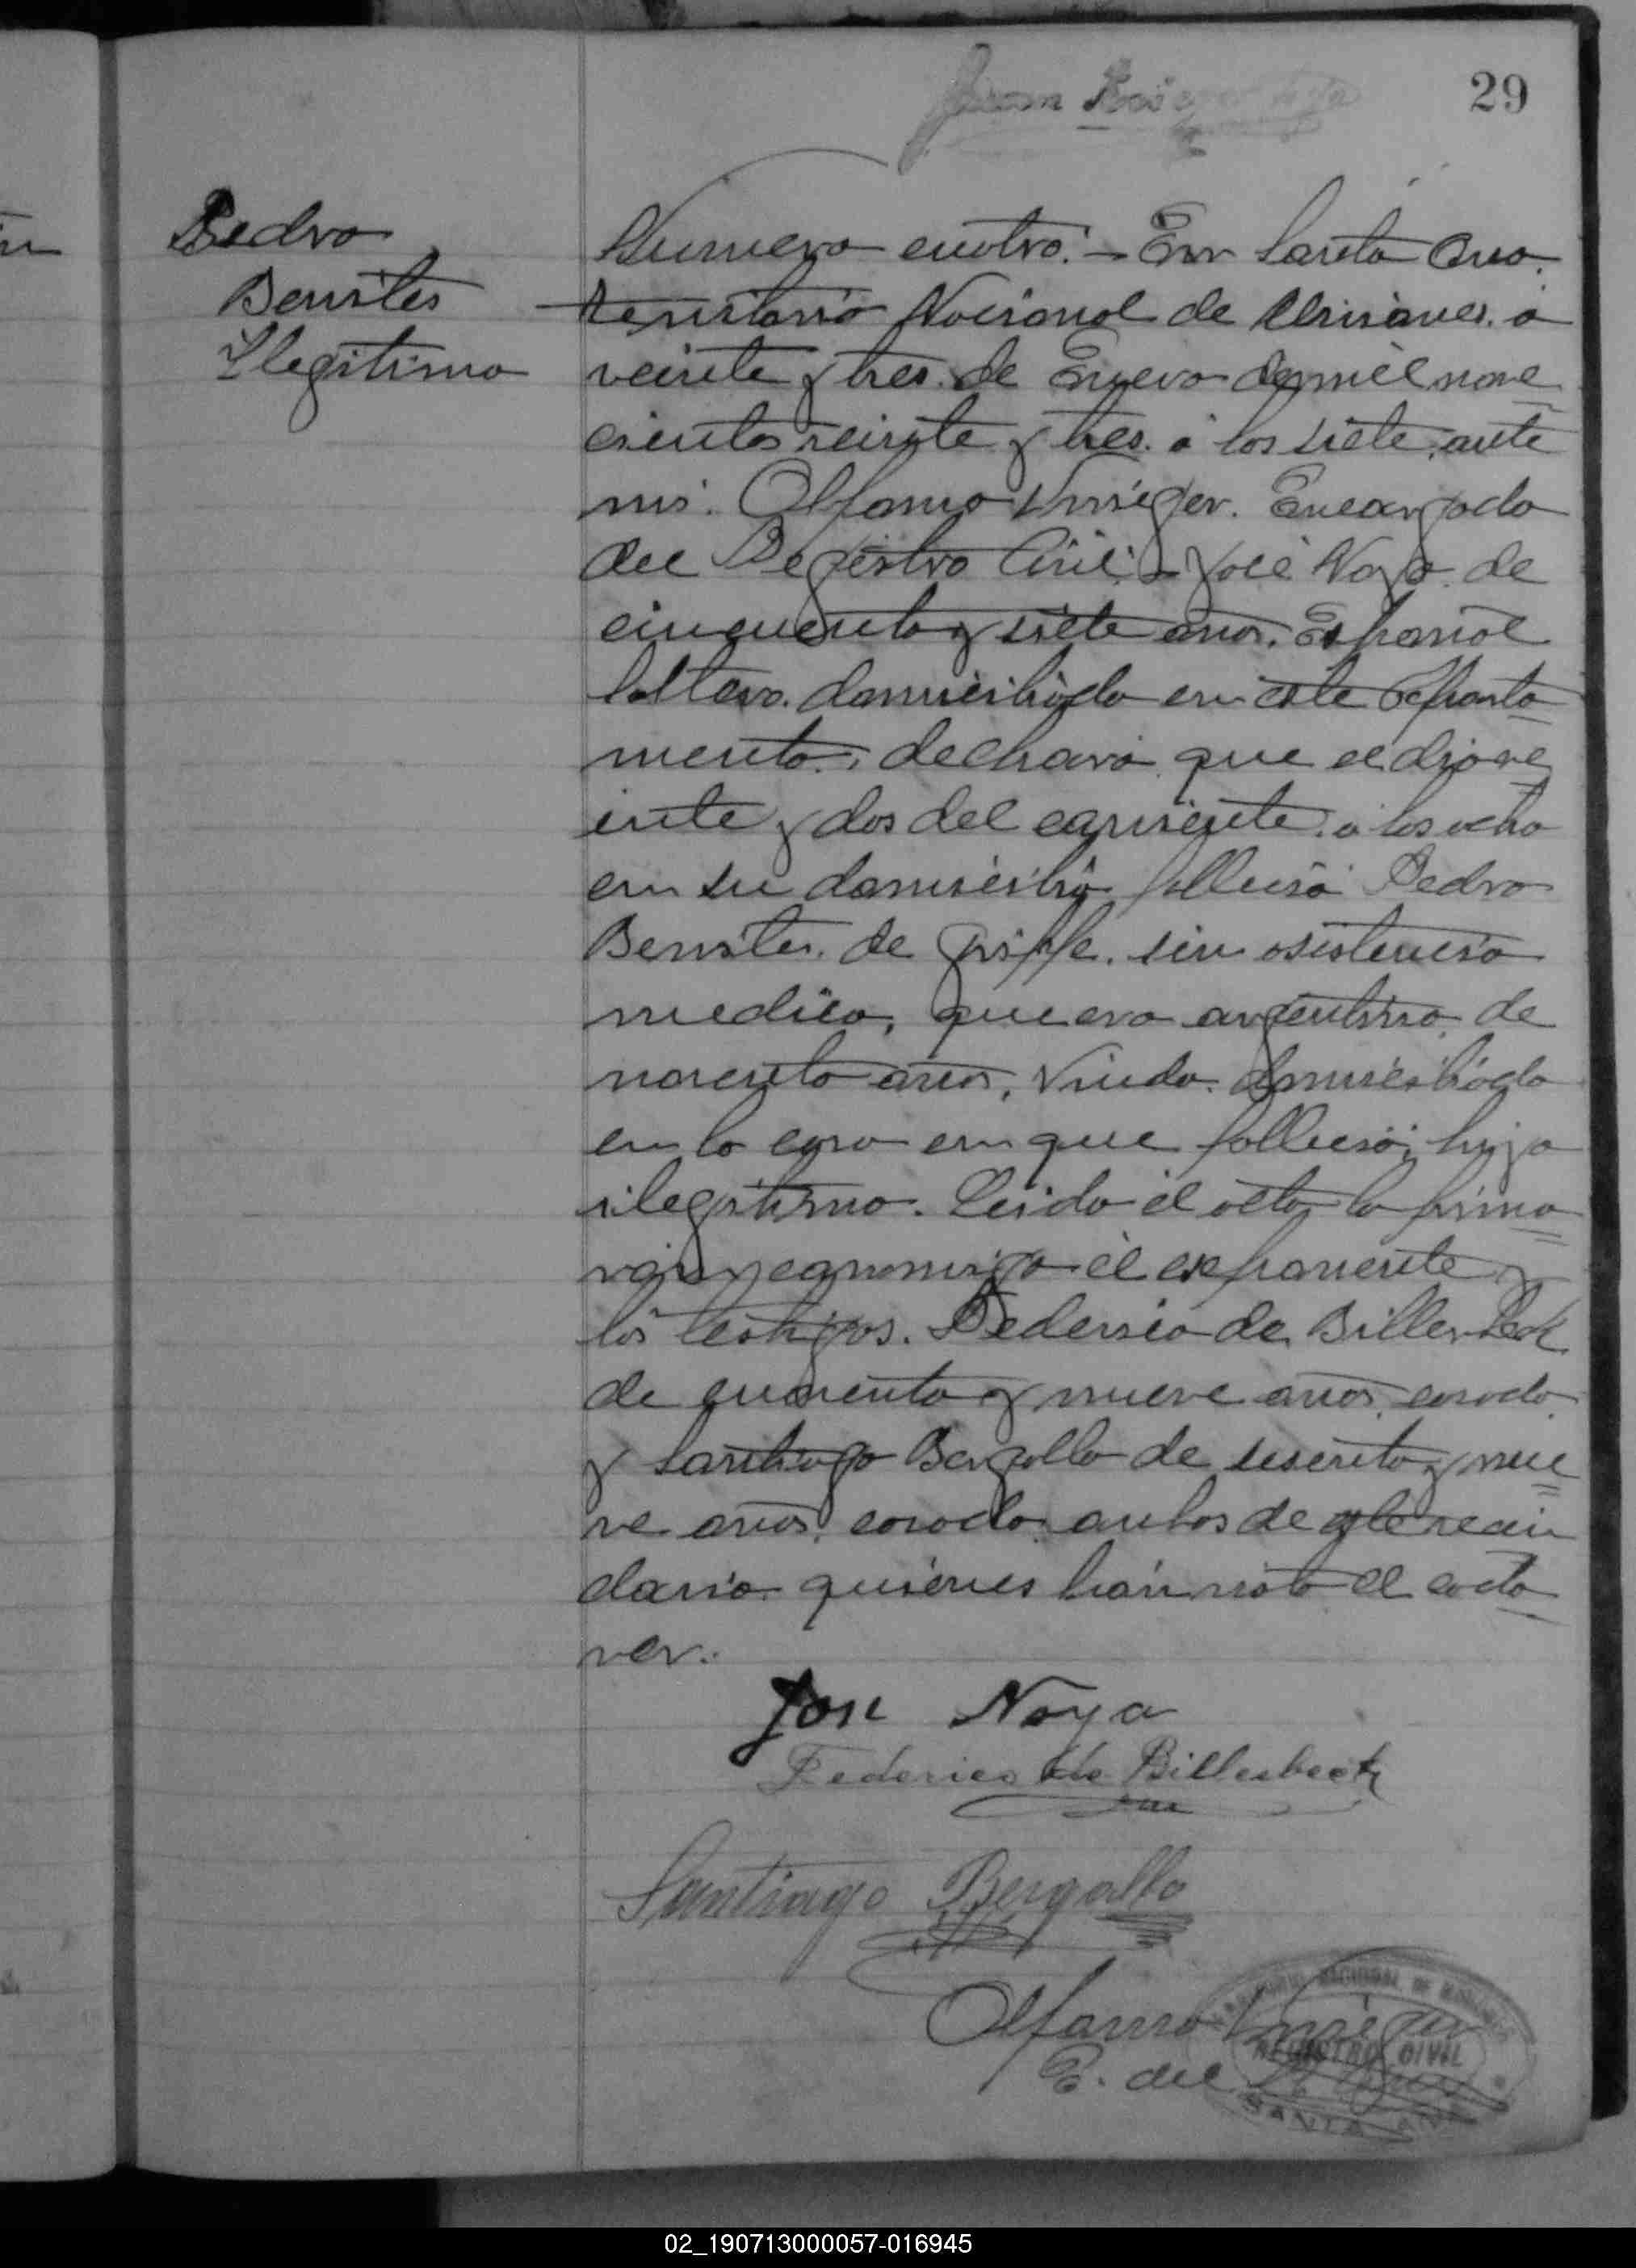 29
Pedro
Benites
Ilegitimo
Numero cuatro. - En Santa Ana
territorio Nacional de Misiones. a
veinte y tres de Enero de mil nove
cientos veinte y tres. á las siete, ante
mi. Alfonso Encargado
del Registro Civil. José Noya. de
cincuenta y siete años. Español
Soltero. domiciliado en este Departa
mento. declaró que el dia ve
inte y dos del corriente a las ocho
en su domicilio fallecio Pedro
Benites. de grippe. sin asistencia
medica, que era argentino de
noventa años, Viudo. domiciliado
en la casa en que fallecio; hijo
ilegitimo. Leido el acta la firma
ron conmigo el exponente y
los testigos. Federico de Billerbeck
de cuarenta y nueve años, casado
y Santiago Bergallo de sesenta y nue
ve años, casado ambos de este vecin
dario quienes han visto el cada
ver.
Jose Noya
Federico de Billerbeck
Santiago Bergallo
Alfonso
E. del
TERRITORIO NACIONAL DE MISIONES
REGISTRO CIVIL
SANTA ANA
02_190713000057-016945